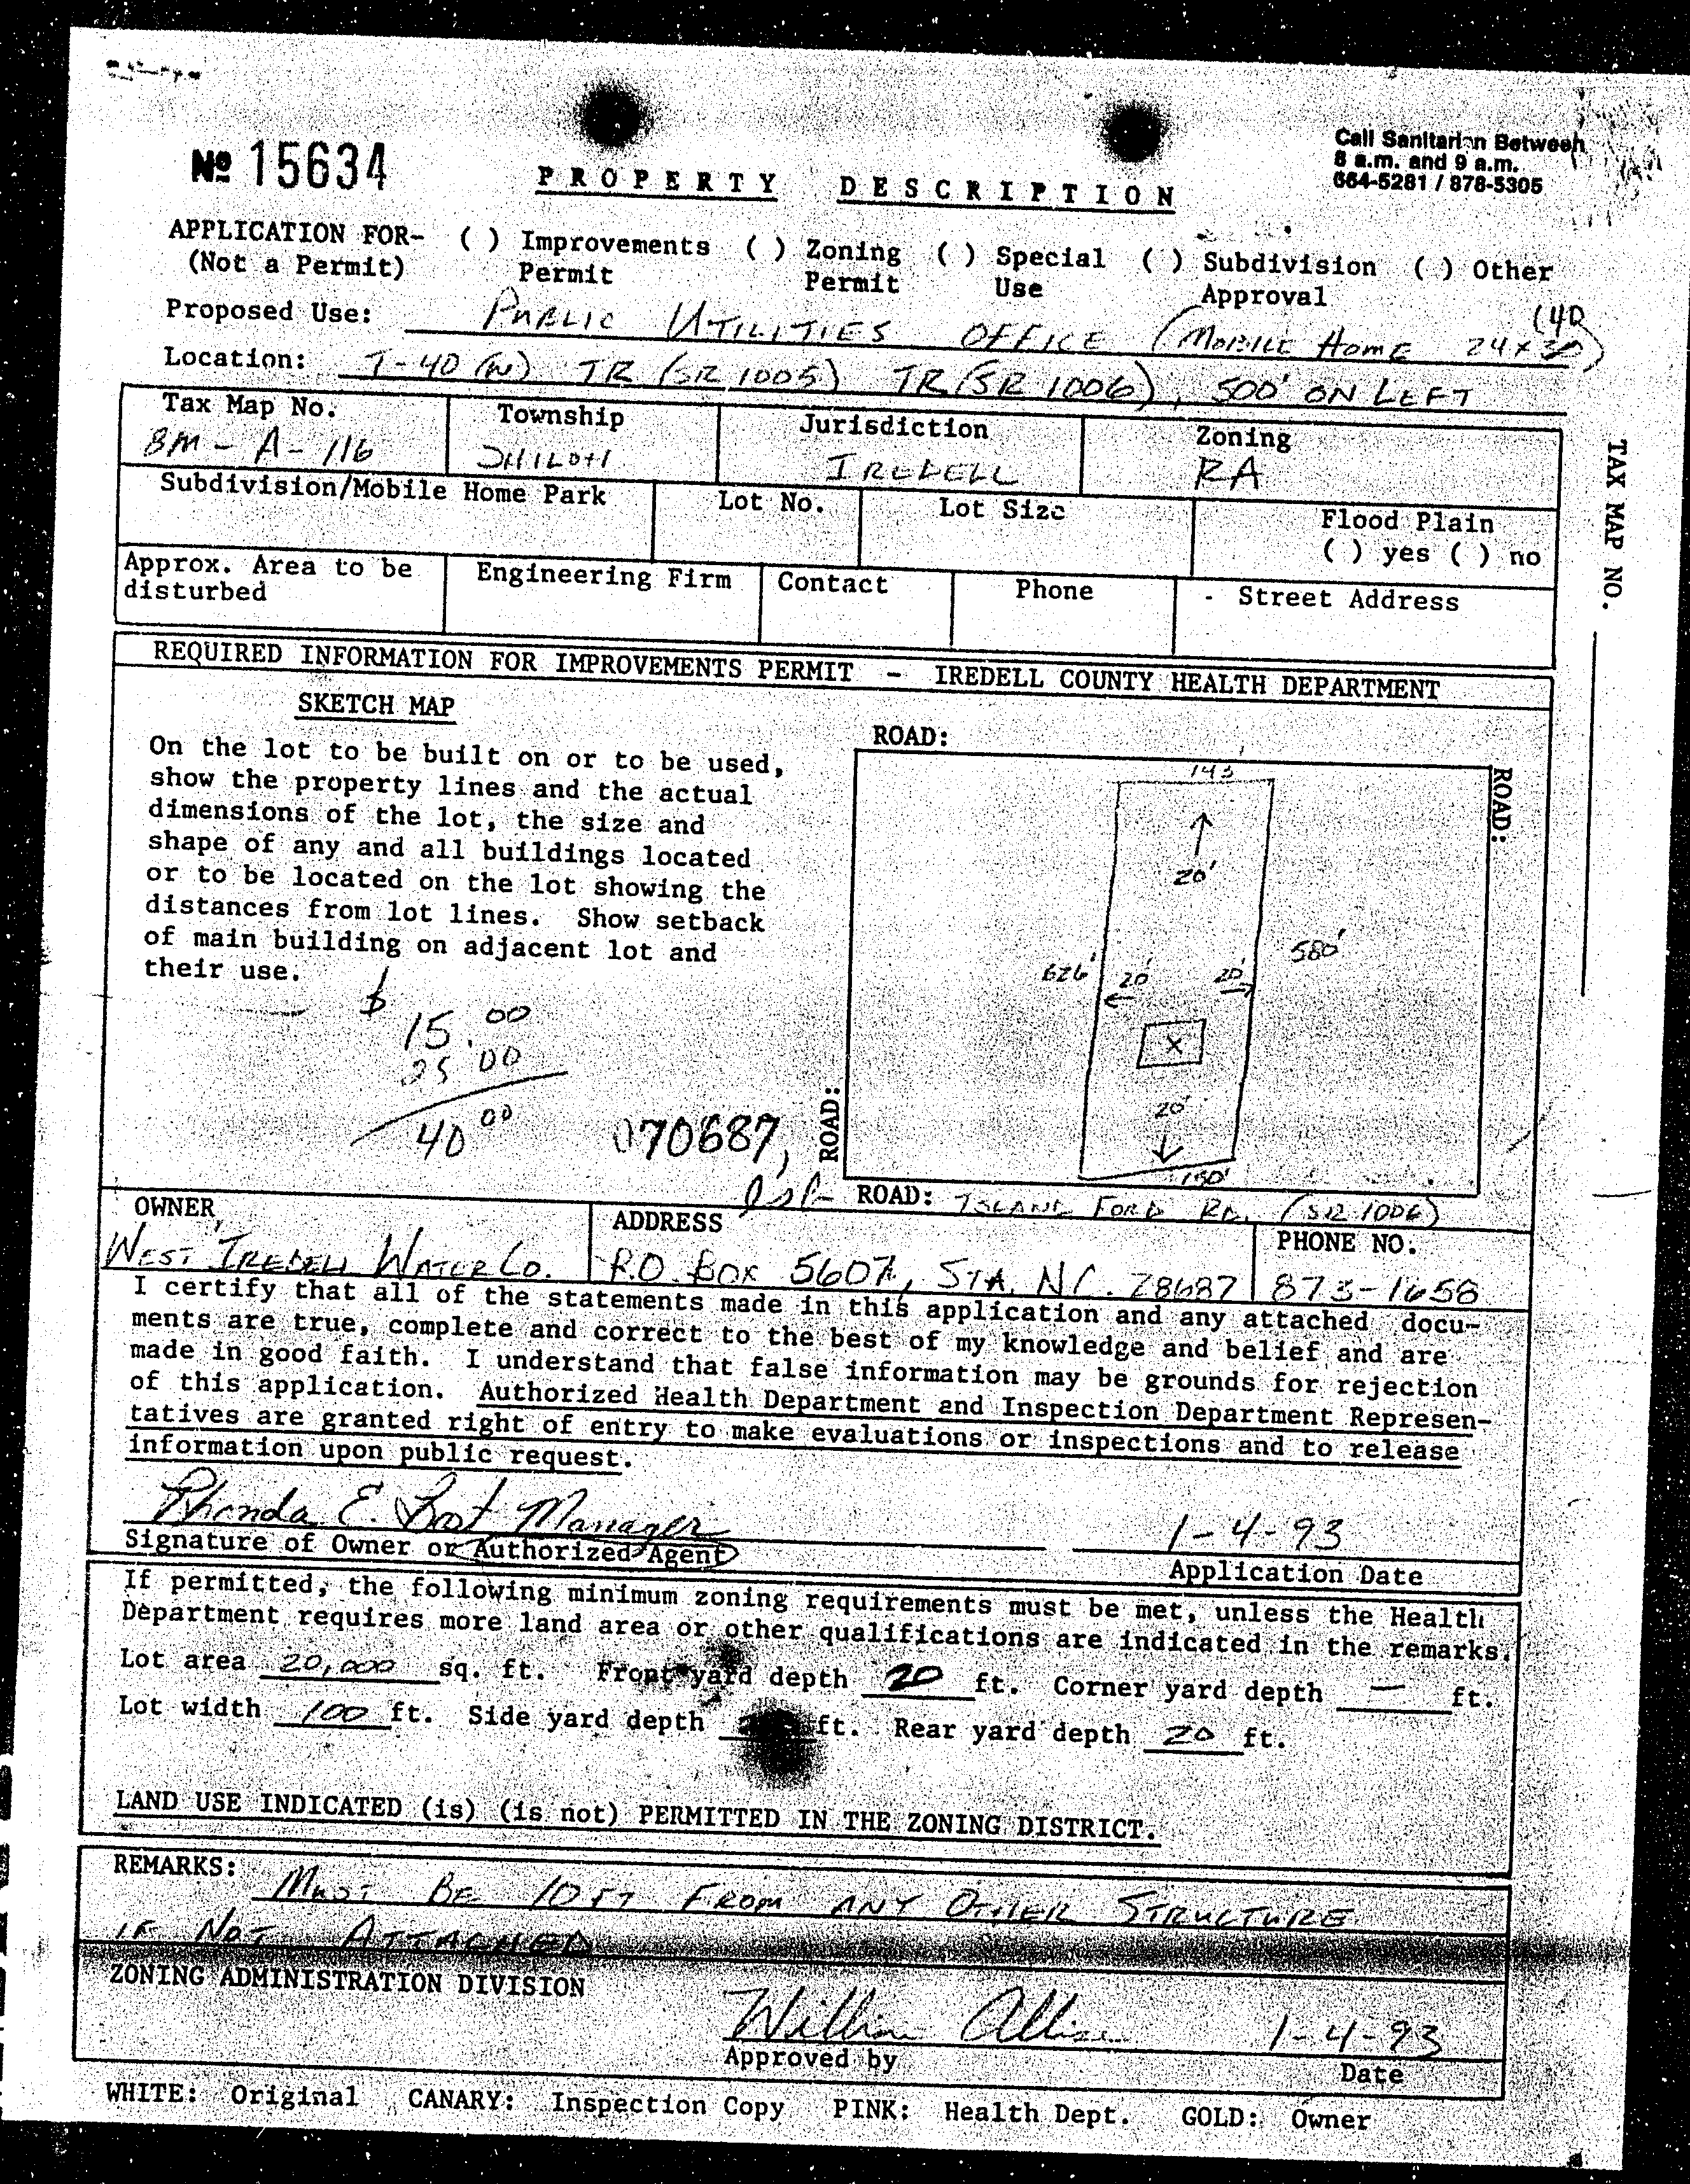 Call Sanitarian Between
8 a.m. and 9 a.m.
664-5281 / 878-5305
Nº 15634
PROPERTY DESCRIPTION
APPLICATION FOR- ( ) Improvements ( ) Zoning ( ) Special ( ) Subdivision ( ) Other
(Not a Permit) Permit Permit Use Approval
Proposed Use: PUBLIC UTILITIES OFFICE (MOBILE HOME 24 x 40)
Location: I-40 (W) TR (SR 1005) TR (SR 1006), 500' ON LEFT
Tax Map No. Township Jurisdiction Zoning
8M - A - 116 SHILOH IREDELL RA
Subdivision/Mobile Home Park Lot No. Lot Size Flood Plain
( ) yes ( ) no
Approx. Area to be Engineering Firm Contact Phone Street Address
disturbed
TAX MAP NO.
REQUIRED INFORMATION FOR IMPROVEMENTS PERMIT - IREDELL COUNTY HEALTH DEPARTMENT
SKETCH MAP
On the lot to be built on or to be used,
show the property lines and the actual
dimensions of the lot, the size and
shape of any and all buildings located
or to be located on the lot showing the
distances from lot lines. Show setback
of main building on adjacent lot and
their use.
$ 15.00
25 00
40 00
070687,
ROAD:
ROAD:
143'
20'
626' 20' 20' 580'
X
20'
150'
ROAD:
ROAD: ISLAND FORD RD. (SR 1006)
OWNER ADDRESS PHONE NO.
WEST IREDELL WATER CO. P.O. BOX 5607, STA. NC. 28687 873-1658
I certify that all of the statements made in this application and any attached docu-
ments are true, complete and correct to the best of my knowledge and belief and are
made in good faith. I understand that false information may be grounds for rejection
of this application. Authorized Health Department and Inspection Department Represen-
tatives are granted right of entry to make evaluations or inspections and to release
information upon public request.
Rhonda E. Manager 1-4-93
Signature of Owner or Authorized Agent Application Date
If permitted, the following minimum zoning requirements must be met, unless the Health
Department requires more land area or other qualifications are indicated in the remarks.
Lot area 20,000 sq. ft. Front yard depth 20 ft. Corner yard depth — ft.
Lot width 100 ft. Side yard depth ft. Rear yard depth 20 ft.
LAND USE INDICATED (is) (is not) PERMITTED IN THE ZONING DISTRICT.
REMARKS: MUST BE 10 FT FROM ANY OTHER STRUCTURE
IF NOT ATTACHED
ZONING ADMINISTRATION DIVISION
William Allison 1-4-93
Approved by Date
WHITE: Original CANARY: Inspection Copy PINK: Health Dept. GOLD: Owner